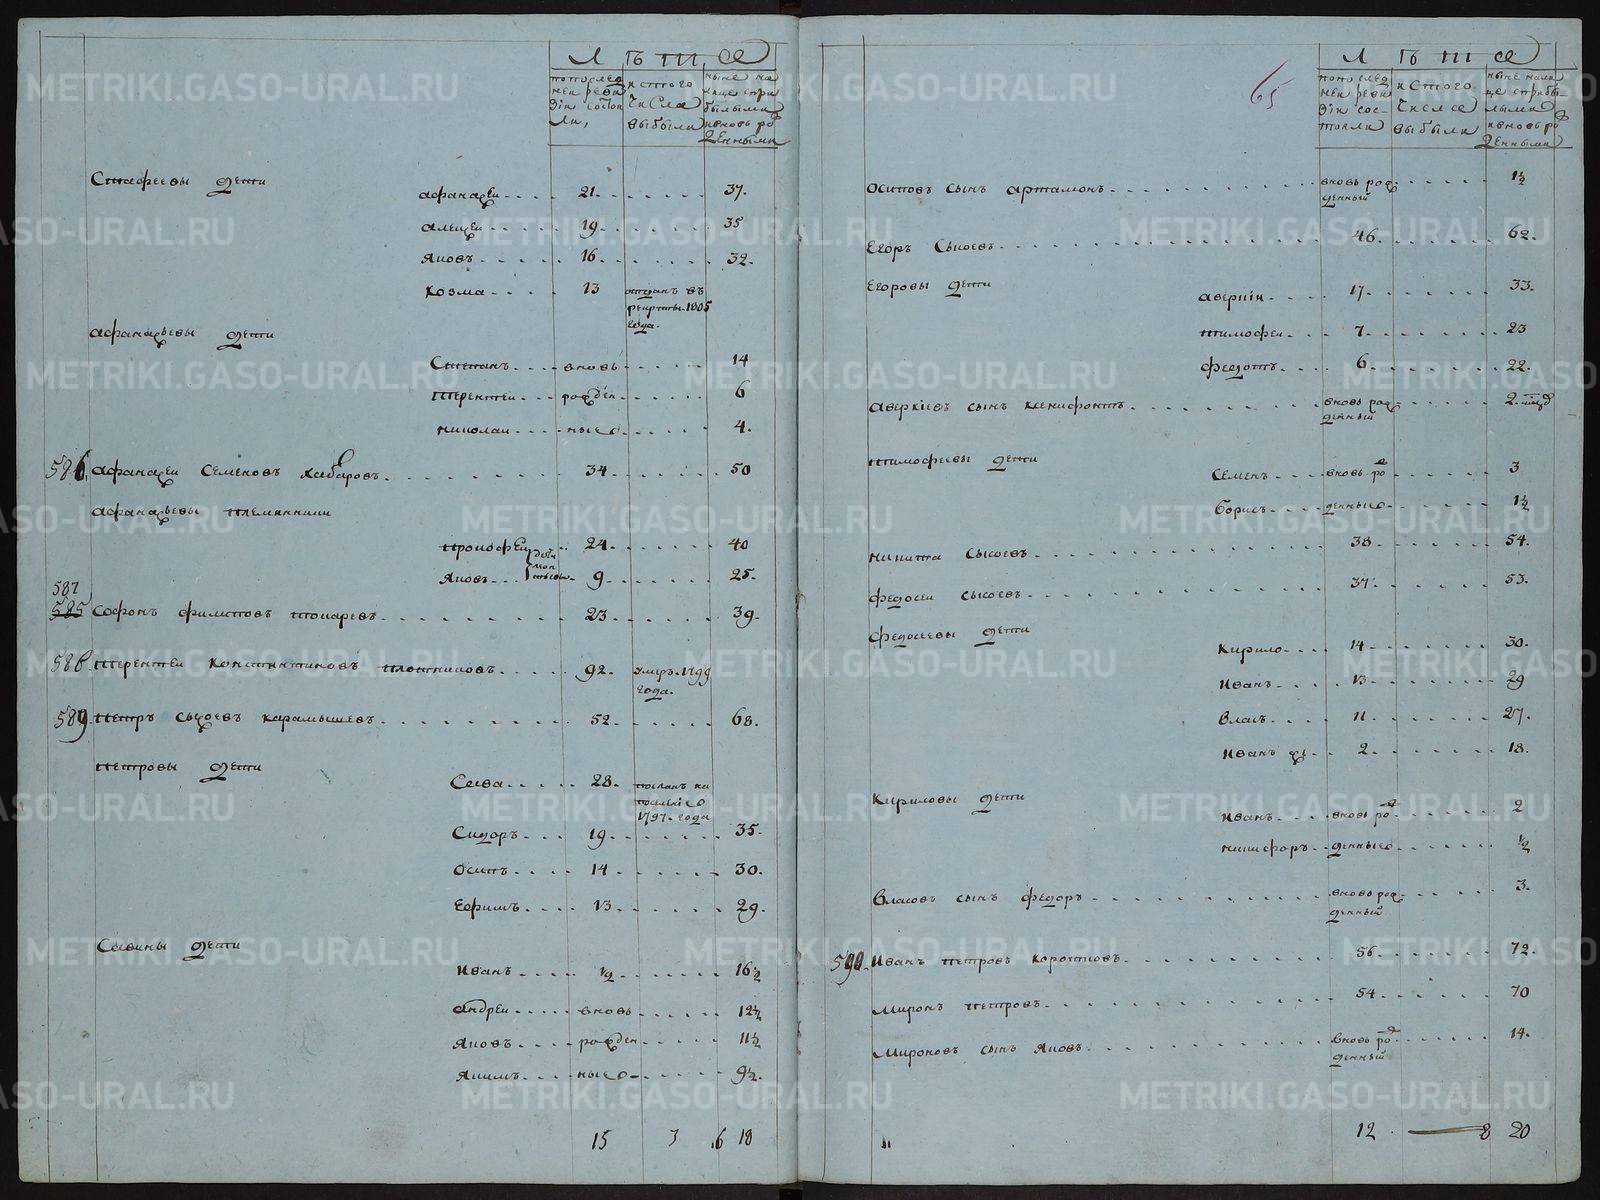 Лѣта
по последней ревизiи состояли,
из того числа выбыли
ныне на лице с прибылыми и вновь рожденными
Стафеевы дети
афанасеи 21 37.
алексеи 19 35
Яковъ 16 32.
Козма 13 отданъ въ рекруты 1805 года.
афанасьевы дети
Степанъ вновь 14
терентеи рожден 6
николаи ные 4.
586. афанасеи Семеновъ хабаровъ 34 50
афанасьевы племянники
прокофеи 24 40
Яковъ 9 25.
587
585 Софонъ филиповъ токаревъ 23 39.
588. терентеи Констянтиновъ плотниковъ 92. умеръ 1799 года.
589. петръ сысоевъ карамышевъ 52 68.
петровы дети
Савва 28. посланъ на поселенiе 1797. года
Сидоръ 19 35.
Осипъ 14 30.
Ефимъ 13 29.
Савины дети
Иванъ 1/2 16 1/2
андреи вновь 12 1/2
Яковъ рожден 11 1/2
Якимъ ные 9 1/2.
15 3 6 18
65
Лѣта
по последней ревизiи состояли
из того числа выбыли
ныне на лице с прибылыми и вновь рожденными
осиповъ сынъ артамонъ вновь рожденный 1 1/2
Егоръ Сысоевъ 46. 62.
Егоровы дети
аверкiи 17 33.
тимофеи 7 23
федотъ 6 22.
аверкiевъ сынъ ксенифонтъ вновь рожденный 2.
тимофеевы дети
Семенъ вновь ро 3
борисъ жденные 1 1/2
никита сысоевъ 38 54.
федосеи сысоевъ 37 53.
федосеевы дети
Кирило 14 30.
Иванъ 13 29
Власъ 11 27.
Иванъ же 2. 18.
Кириловы дети
Иванъ вновь ро 2
никифоръ жденные 1/2
Власовъ сынъ федоръ вновь рожденный 3.
590. Иванъ петровъ коротковъ 56 72.
Миронъ петровъ 54 70
Мироновъ сынъ Яковъ вновь рожденный 14.
12 8 20
METRIKI.GASO-URAL.RU